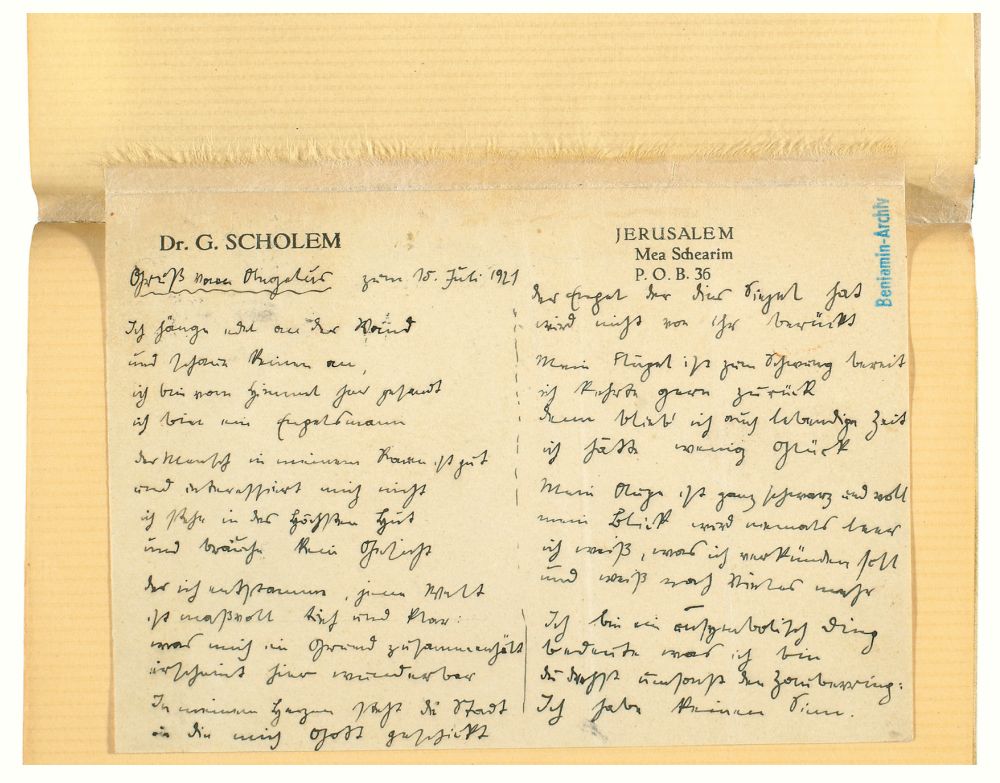 Dr. G. SCHOLEM
Gruß vom Angelus zum 15. Juli 1921
Ich hänge edel an der Wand
und schaue keinen an,
ich bin vom Himmel her gesandt
ich bin ein Engelsmann
der Mensch in meinem Raum ist gut
und interessiert mich nicht
ich stehe in des Höchsten Hut
und brauche kein Gesicht
der ich entstamme, jene Welt
ist maßvoll tief und klar:
was mich im Grund zusammenhält
erscheint hier wunderbar
In meinem Herzen steht die Stadt
in die mich Gott geschickt
JERUSALEM
Mea Schearim
P. O. B. 36
der Engel der dies Siegel hat
wird nicht von ihr berückt
Mein Flügel ist zum Schwung bereit
ich kehrte gern zurück
denn blieb' ich auch lebendige Zeit
ich hätte wenig Glück
Mein Auge ist ganz schwarz und voll
mein Blick wird niemals leer
ich weiß, was ich verkünden soll
und weiß noch vieles mehr
Ich bin ein unsymbolisch Ding
bedeute was ich bin
du drehst umsonst den Zauberring:
Ich habe keinen Sinn.
Benjamin-Archiv